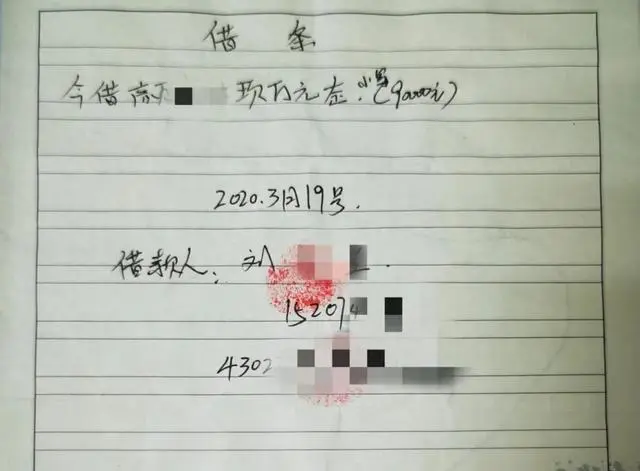 借条
今借高 玖万元正.小写(90000元)
2020.3月19号.
借款人: 刘
152074
4302